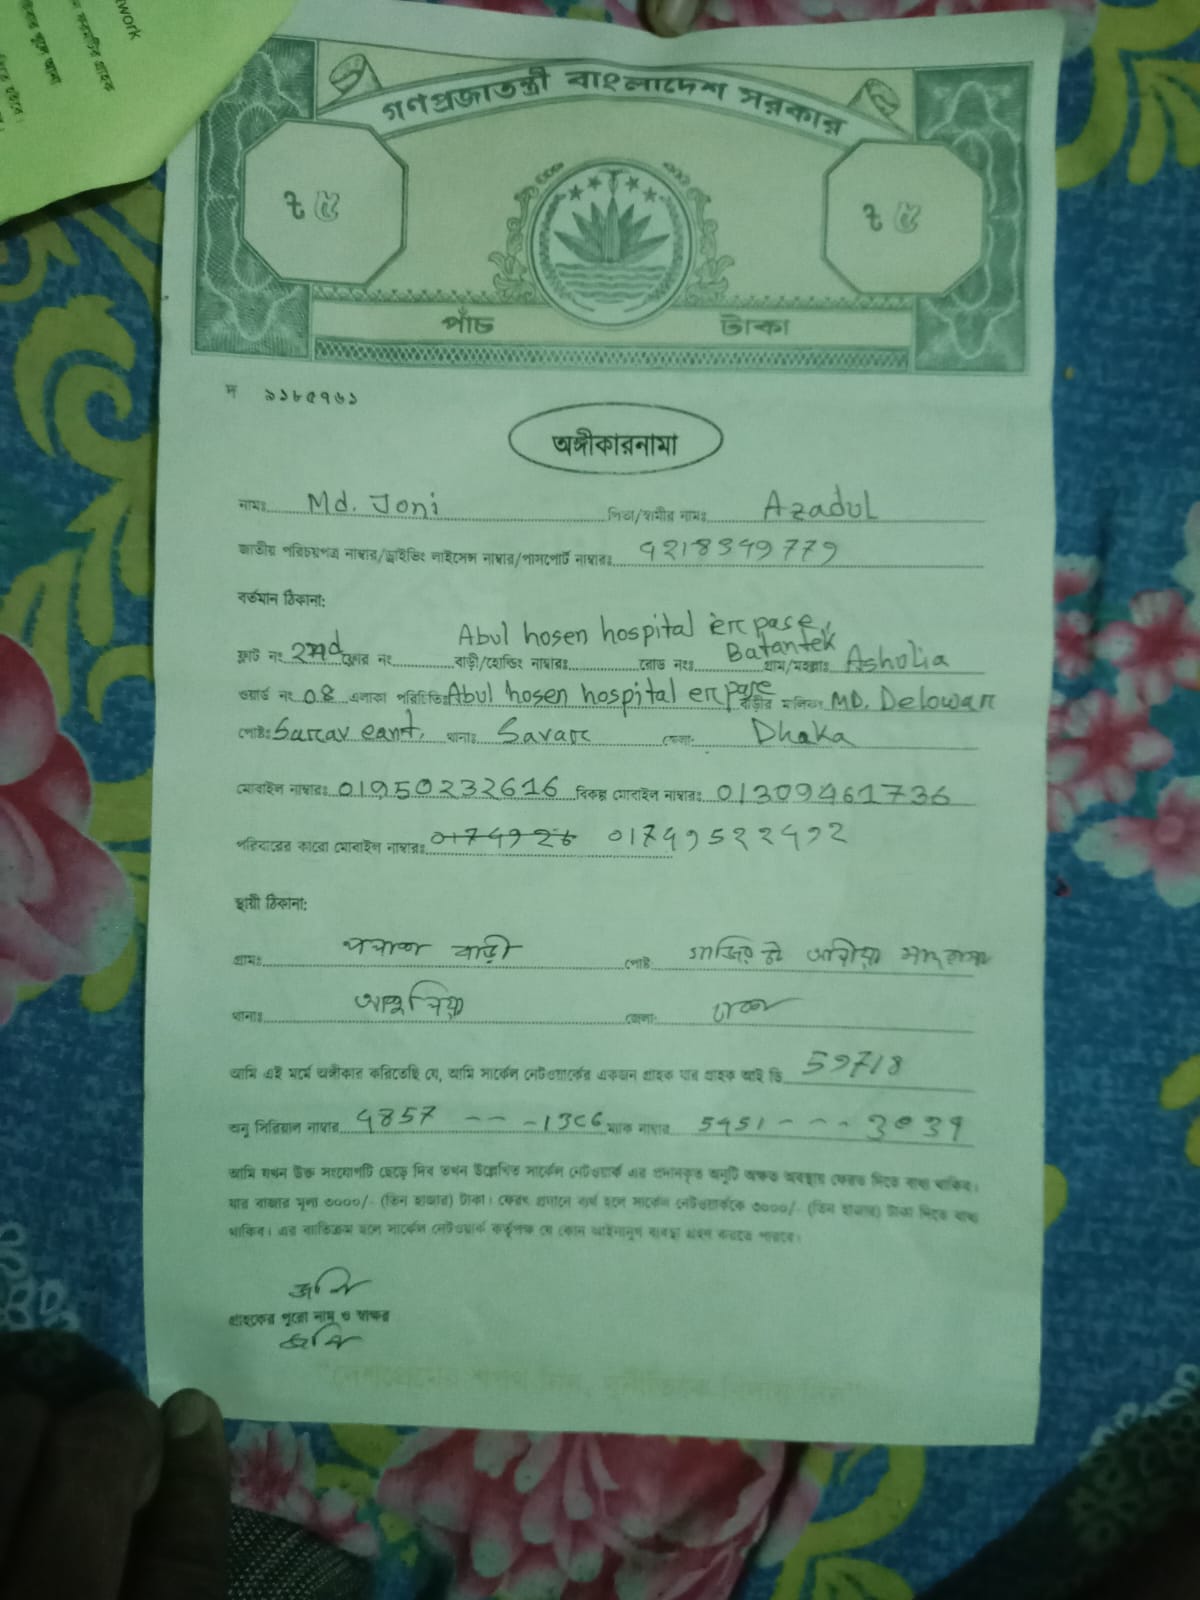 twork
গণপ্রজাতন্ত্রী বাংলাদেশ সরকার
৳ ৫ ৳ ৫
পাঁচ টাকা
দ ৯১৮৫৭৬১
অঙ্গীকারনামা
নামঃ Md. Joni পিতা/স্বামীর নামঃ Azadul
জাতীয় পরিচয়পত্র নাম্বার/ড্রাইভিং লাইসেন্স নাম্বার/পাসপোর্ট নাম্বারঃ
বর্তমান ঠিকানা:
Abul hosen hospital er pase, Batantek
ফ্লাট নং 2nd ফ্লোর নং বাড়ী/হোল্ডিং নাম্বারঃ রোড নংঃ গ্রাম/মহল্লাঃ Asholia
ওয়ার্ড নং 08 এলাকা পরিচিতিঃ Abul hosen hospital er pase বাড়ীর মালিকঃ MD. Delowar
পোষ্টঃ থানাঃ Savar জেলা: Dhaka
মোবাইল নাম্বারঃ 01950232616 বিকল্প মোবাইল নাম্বারঃ 01309461736
পরিবারের কারো মোবাইল নাম্বারঃ
স্থায়ী ঠিকানা:
গ্রামঃ বাড়ী পোষ্ট
থানাঃ আশুলিয়া জেলা: ঢাকা
আমি এই মর্মে অঙ্গীকার করিতেছি যে, আমি সার্কেল নেটওয়ার্কের একজন গ্রাহক যার গ্রাহক আই ডি 59718
অনু সিরিয়াল নাম্বার ম্যাক নাম্বার
আমি যখন উক্ত সংযোগটি ছেড়ে দিব তখন উল্লেখিত সার্কেল নেটওয়ার্ক এর প্রদানকৃত অনুটি অক্ষত অবস্থায় ফেরত দিতে বাধ্য থাকিব।
যার বাজার মূল্য ৩০০০/- (তিন হাজার) টাকা। ফেরৎ প্রদানে ব্যর্থ হলে সার্কেল নেটওয়ার্ককে ৩০০০/- (তিন হাজার) টাকা দিতে বাধ্য
থাকিব। এর ব্যতিক্রম হলে সার্কেল নেটওয়ার্ক কর্তৃপক্ষ যে কোন আইনানুগ ব্যবস্থা গ্রহণ করতে পারবে।
জনি
গ্রাহকের পুরো নাম ও স্বাক্ষর
জনি